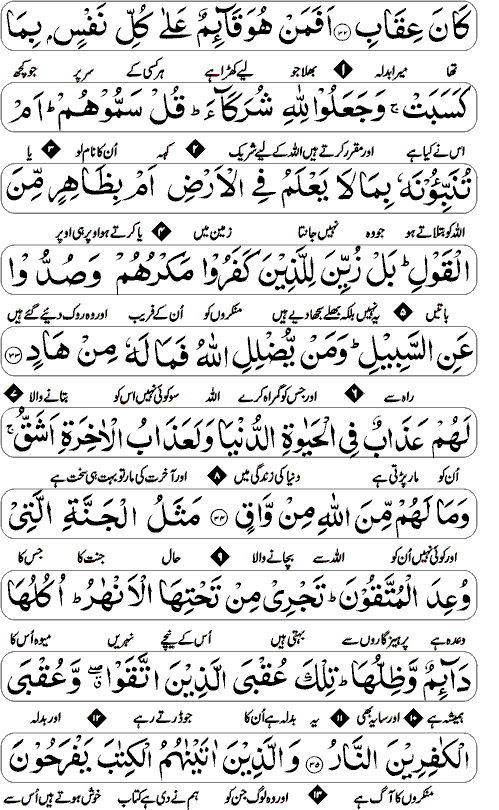 كَانَ عِقَابِ ﴿۳۲﴾ اَفَمَنْ هُوَ قَآئِمٌ عَلٰى كُلِّ نَفْسٍۭ بِمَا
تھا میرا بدلہ ۱ بھلا جو لیے کھڑا ہے ہر کسی کے سر پر جو کچھ
كَسَبَتْ ۚ وَجَعَلُوْا لِلّٰهِ شُرَكَآءَ ؕ قُلْ سَمُّوْهُمْ ؕ اَمْ
اس نے کیا ہے اور مقرر کرتے ہیں اللہ کے لیے شریک ۲ کہہ اُن کا نام لو ۳ یا
تُنَبِّـُٔوْنَهٗ بِمَا لَا يَعْلَمُ فِى الْاَرْضِ اَمْ بِظَاهِرٍ مِّنَ
اللہ کو بتلاتے ہو جو وہ نہیں جانتا زمین میں ۴ یا کرتے ہو اوپر ہی اوپر
الْقَوْلِ ؕ بَلْ زُيِّنَ لِلَّذِيْنَ كَفَرُوْا مَكْرُهُمْ وَصُدُّوْا
باتیں ۵ یہ نہیں بلکہ بھلے سجھا دیے ہیں منکروں کو اُن کے فریب اور وہ روک دئیے گئے ہیں
عَنِ السَّبِيْلِ ؕ وَمَنْ يُّضْلِلِ اللّٰهُ فَمَا لَهٗ مِنْ هَادٍ ﴿۳۳﴾
راہ سے ۶ اور جس کو گمراہ کرے اللہ سو کوئی نہیں اس کو بتانے والا ۷
لَهُمْ عَذَابٌ فِى الْحَيٰوةِ الدُّنْيَا وَلَعَذَابُ الْاٰخِرَةِ اَشَقُّ ۚ
اُن کو مار پڑتی ہے دنیا کی زندگی میں ۸ اور آخرت کی مار تو بہت ہی سخت ہے
وَمَا لَهُمْ مِّنَ اللّٰهِ مِنْ وَّاقٍ ﴿۳۴﴾ مَثَلُ الْجَنَّةِ الَّتِىْ
اور کوئی نہیں اُن کو اللہ سے بچانے والا ۹ حال جنت کا جس کا
وُعِدَ الْمُتَّقُوْنَ ؕ تَجْرِىْ مِنْ تَحْتِهَا الْاَنْهٰرُ ؕ اُكُلُهَا
وعدہ ہے پرہیز گاروں سے بہتی ہیں اُس کے نیچے نہریں میوہ اُس کا
دَآئِمٌ وَّظِلُّهَا ؕ تِلْكَ عُقْبَى الَّذِيْنَ اتَّقَوْا ۖ وَّعُقْبَى
ہمیشہ ہے ۱۰ اور سایہ بھی ۱۱ یہ بدلہ ہے اُن کا جو ڈرتے رہے ۱۲ اور بدلہ
الْكٰفِرِيْنَ النَّارُ ﴿۳۵﴾ وَالَّذِيْنَ اٰتَيْنٰهُمُ الْكِتٰبَ يَفْرَحُوْنَ
منکروں کا آگ ہے ۱۳ اور وہ لوگ جن کو ہم نے دی ہے کتاب خوش ہوتے ہیں اُس سے